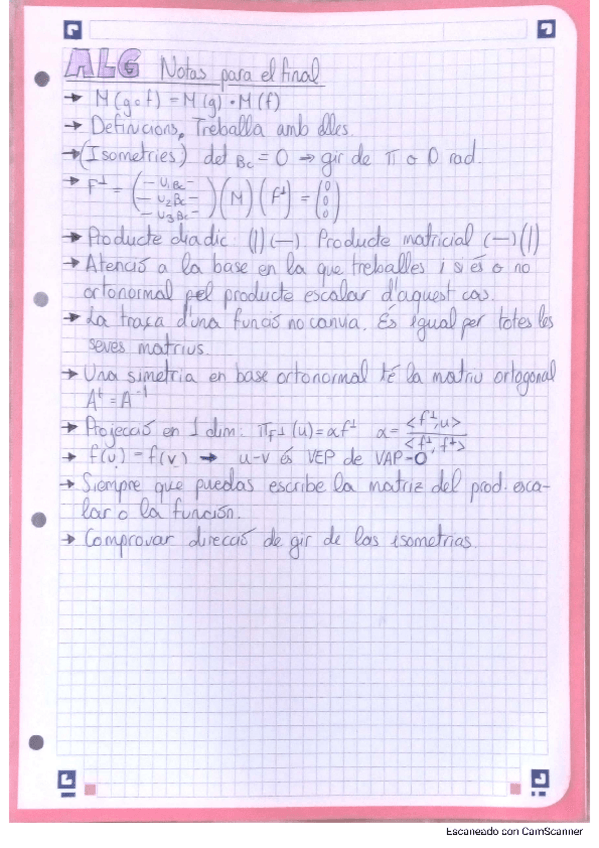 ALG Notas para el final
→ M(g∘f) = M(g) · M(f)
→ Definicions, Treballa amb elles.
→ (Isometries) det Bc = 0 ⇒ gir de π o 0 rad.
→ F^⊥ = (– u₁Bc – / – u₂Bc – / – u₃Bc –) (M) (F^⊥) = (0 / 0 / 0)
→ Producte diadic: (|) (—). Producte matricial (—) (|)
→ Atenció a la base en la que treballes i si és o no
ortonormal pel producte escalar d'aquest cas.
→ La traça d'una funció no canvia. És igual per totes les
seves matrius.
→ Una simetria en base ortonormal té la matriu ortogonal
A^t = A^-1
→ Projecció en 1 dim: π_F^⊥ (u) = αf^⊥ α = <f^⊥, u> / <f^⊥, f^⊥>
→ f(u) = f(v) → u-v és VEP de VAP=0
→ Siempre que puedas escribe la matriz del prod. esca-
lar o la función.
→ Comprovar direcció de gir de las isometrias.
Escaneado con CamScanner